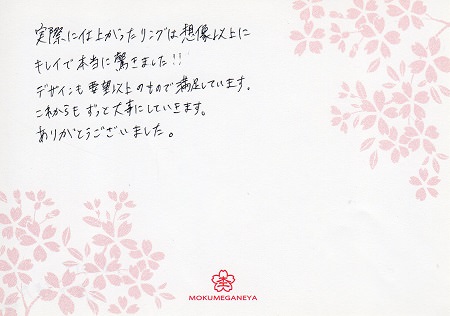 実際に仕上がったリングは想像以上に
キレイで本当に驚きました!!
デザインも要望以上のもので満足しています。
これからもずっと大事にしていきます。
ありがとうございました。
MOKUMEGANEYA